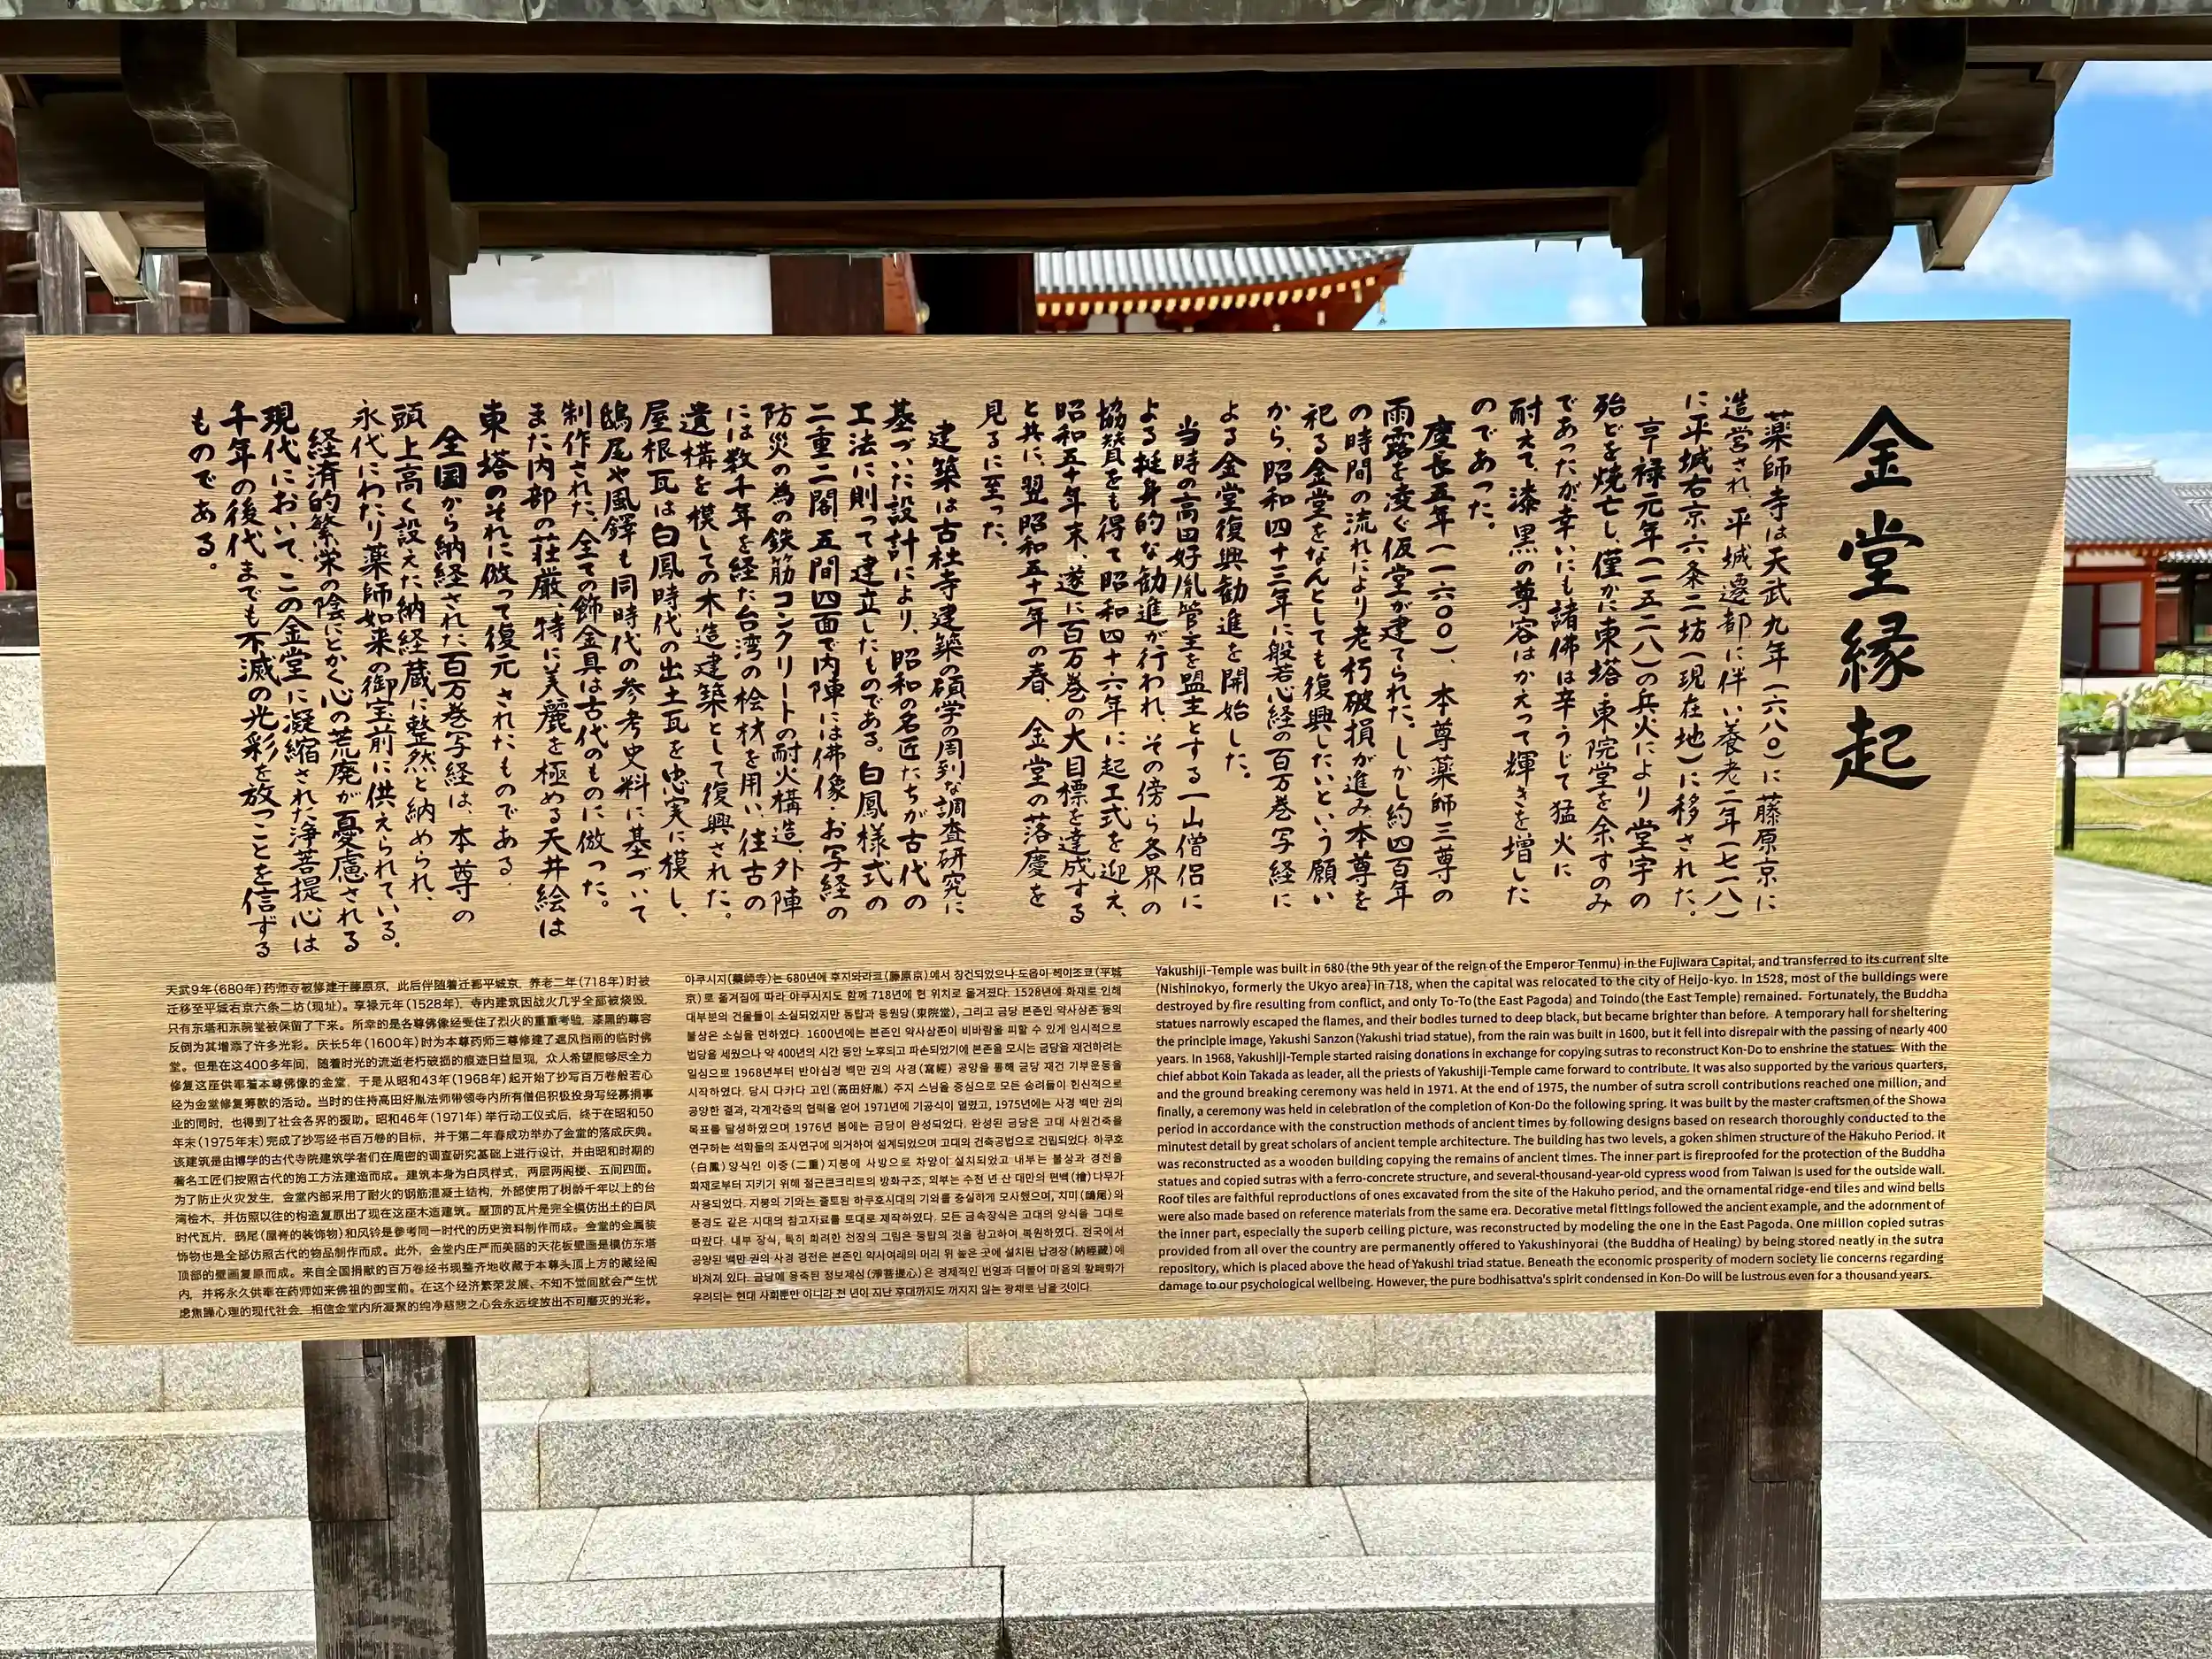 金堂縁起
薬師寺は天武九年（六八〇）に藤原京に
造営され、平城遷都に伴い養老二年（七一八）
に平城右京六条二坊（現在地）に移された。
享禄元年（一五二八）の兵火により堂宇の
殆どを焼亡し、僅かに東塔・東院堂を余すのみ
であったが、幸いにも諸佛は辛うじて猛火に
耐えて、漆黒の尊容はかえって輝きを増した
のであった。
慶長五年（一六〇〇）、本尊薬師三尊の
雨露を凌ぐ仮堂が建てられた。しかし約四百年
の時間の流れにより老朽破損が進み、本尊を
祀る金堂をなんとしても復興したいという願い
から、昭和四十三年に般若心経の百万巻写経に
よる金堂復興勧進を開始した。
当時の高田好胤管主を盟主とする一山僧侶に
よる挺身的な勧進が行われ、その傍ら各界の
協賛をも得て昭和四十六年に起工式を迎え、
昭和五十年末、遂に百万巻の大目標を達成する
と共に、翌昭和五十一年の春、金堂の落慶を
見るに至った。
建築は古社寺建築の碩学の周到な調査研究に
基づいた設計により、昭和の名匠たちが古代の
工法に則って建立したものである。白鳳様式の
二重二閣、五間四面で内陣には佛像・お写経の
防災の為の鉄筋コンクリートの耐火構造、外陣
には数千年を経た台湾の桧材を用い、往古の
遺構を模しての木造建築として復興された。
屋根瓦は白鳳時代の出土瓦を忠実に模し、
鴟尾や風鐸も同時代の参考史料に基づいて
制作された。全ての飾金具は古代のものに倣った。
また内部の荘厳、特に美麗を極める天井絵は
東塔のそれに倣って復元されたものである.
全国から納経された百万巻写経は、本尊の
頭上高く設えた納経蔵に整然と納められ、
永代にわたり薬師如来の御宝前に供えられている。
経済的繁栄の陰にとかく心の荒廃が憂慮される
現代において、この金堂に凝縮された浄菩提心は
千年の後代までも不滅の光彩を放つことを信ずる
ものである。
天武9年(680年)药师寺被修建于藤原京，此后伴随着迁都平城京，养老二年(718年)时被
迁移至平城右京六条二坊(现址)。享禄元年(1528年)，寺内建筑因战火几乎全部被烧毁，
只有东塔和东院堂被保留了下来。所幸的是各尊佛像经受住了烈火的重重考验，漆黑的尊容
反倒为其增添了许多光彩。庆长5年(1600年)时为本尊药师三尊修建了遮风挡雨的临时佛
堂。但是在这400多年间，随着时光的流逝老朽破损的痕迹日益显现，众人希望能够尽全力
修复这座供奉着本尊佛像的金堂，于是从昭和43年(1968年)起开始了抄写百万卷般若心
经为金堂修复筹款的活动。当时的住持高田好胤法师带领寺内所有僧侣积极投身写经募捐事
业的同时，也得到了社会各界的援助。昭和46年(1971年)举行动工仪式后，终于在昭和50
年末(1975年末)完成了抄写经书百万卷的目标，并于第二年春成功举办了金堂的落成庆典。
该建筑是由博学的古代寺院建筑学者们在周密的调查研究基础上进行设计，并由昭和时期的
著名工匠们按照古代的施工方法建造而成。建筑本身为白凤样式，两层两阁楼、五间四面。
为了防止火灾发生，金堂内部采用了耐火的钢筋混凝土结构，外部使用了树龄千年以上的台
湾桧木，并仿照以往的构造复原出了现在这座木造建筑。屋顶的瓦片是完全模仿出土的白凤
时代瓦片，鸱尾(屋脊的装饰物)和风铃是参考同一时代的历史资料制作而成。金堂的金属装
饰物也是全部仿照古代的物品制作而成。此外，金堂内庄严而美丽的天花板壁画是模仿东塔
顶部的壁画复原而成。来自全国捐献的百万卷经书现整齐地收藏于本尊头顶上方的藏经阁
内，并将永久供奉在药师如来佛祖的御宝前。在这个经济繁荣发展、不知不觉间就会产生忧
虑焦躁心理的现代社会，相信金堂内所凝聚的纯净慈悲之心会永远绽放出不可磨灭的光彩。
야쿠시지(藥師寺)는 680년에 후지와라쿄(藤原京)에서 창건되었으나 도읍이 헤이조쿄(平城
京)로 옮겨짐에 따라 야쿠시지도 함께 718년에 현 위치로 옮겨졌다. 1528년에 화재로 인해
대부분의 건물들이 소실되었지만 동탑과 동원당(東院堂), 그리고 금당 본존인 약사삼존 등의
불상은 소실을 면하였다. 1600년에는 본존인 약사삼존이 비바람을 피할 수 있게 임시적으로
법당을 세웠으나 약 400년의 시간 동안 노후되고 파손되었기에 본존을 모시는 금당을 재건하려는
일심으로 1968년부터 반야심경 백만 권의 사경(寫經) 공양을 통해 금당 재건 기부운동을
시작하였다. 당시 다카다 고인(高田好胤) 주지 스님을 중심으로 모든 승려들이 헌신적으로
공양한 결과, 각계각층의 협력을 얻어 1971년에 기공식이 열렸고, 1975년에는 사경 백만 권의
목표를 달성하였으며 1976년 봄에는 금당이 완성되었다. 완성된 금당은 고대 사원건축을
연구하는 석학들의 조사연구에 의거하여 설계되었으며 고대의 건축공법으로 건립되었다. 하쿠호
(白鳳)양식인 이중(二重)지붕에 사방으로 차양이 설치되었고 내부는 불상과 경전을
화재로부터 지키기 위해 철근콘크리트의 방화구조, 외부는 수천 년 산 대만의 편백(檜)나무가
사용되었다. 지붕의 기와는 출토된 하쿠호시대의 기와를 충실하게 모사했으며, 치미(鴟尾)와
풍경도 같은 시대의 참고자료를 토대로 제작하였다. 모든 금속장식은 고대의 양식을 그대로
따랐다. 내부 장식, 특히 화려한 천장의 그림은 동탑의 것을 참고하여 복원하였다. 전국에서
공양된 백만 권의 사경 경전은 본존인 약사여래의 머리 위 높은 곳에 설치된 납경장(納經藏)에
바쳐져 있다. 금당에 응축된 정보제심(淨菩提心)은 경제적인 번영과 더불어 마음의 황폐화가
우려되는 현대 사회뿐만 아니라 천 년이 지난 후대까지도 꺼지지 않는 광채로 남을 것이다.
Yakushiji-Temple was built in 680(the 9th year of the reign of the Emperor Tenmu) in the Fujiwara Capital, and transferred to its current site
(Nishinokyo, formerly the Ukyo area) in 718, when the capital was relocated to the city of Heijo-kyo. In 1528, most of the buildings were
destroyed by fire resulting from conflict, and only To-To(the East Pagoda) and Toindo(the East Temple) remained. Fortunately, the Buddha
statues narrowly escaped the flames, and their bodies turned to deep black, but became brighter than before. A temporary hall for sheltering
the principle image, Yakushi Sanzon(Yakushi triad statue), from the rain was built in 1600, but it fell into disrepair with the passing of nearly 400
years. In 1968, Yakushiji-Temple started raising donations in exchange for copying sutras to reconstruct Kon-Do to enshrine the statues. With the
chief abbot Koin Takada as leader, all the priests of Yakushiji-Temple came forward to contribute. It was also supported by the various quarters,
and the ground breaking ceremony was held in 1971. At the end of 1975, the number of sutra scroll contributions reached one million, and
finally, a ceremony was held in celebration of the completion of Kon-Do the following spring. It was built by the master craftsmen of the Showa
period in accordance with the construction methods of ancient times by following designs based on research thoroughly conducted to the
minutest detail by great scholars of ancient temple architecture. The building has two levels, a goken shimen structure of the Hakuho Period. It
was reconstructed as a wooden building copying the remains of ancient times. The inner part is fireproofed for the protection of the Buddha
statues and copied sutras with a ferro-concrete structure, and several-thousand-year-old cypress wood from Taiwan is used for the outside wall.
Roof tiles are faithful reproductions of ones excavated from the site of the Hakuho period, and the ornamental ridge-end tiles and wind bells
were also made based on reference materials from the same era. Decorative metal fittings followed the ancient example, and the adornment of
the inner part, especially the superb ceiling picture, was reconstructed by modeling the one in the East Pagoda. One million copied sutras
provided from all over the country are permanently offered to Yakushinyorai (the Buddha of Healing) by being stored neatly in the sutra
repository, which is placed above the head of Yakushi triad statue. Beneath the economic prosperity of modern society lie concerns regarding
damage to our psychological wellbeing. However, the pure bodhisattva's spirit condensed in Kon-Do will be lustrous even for a thousand years.